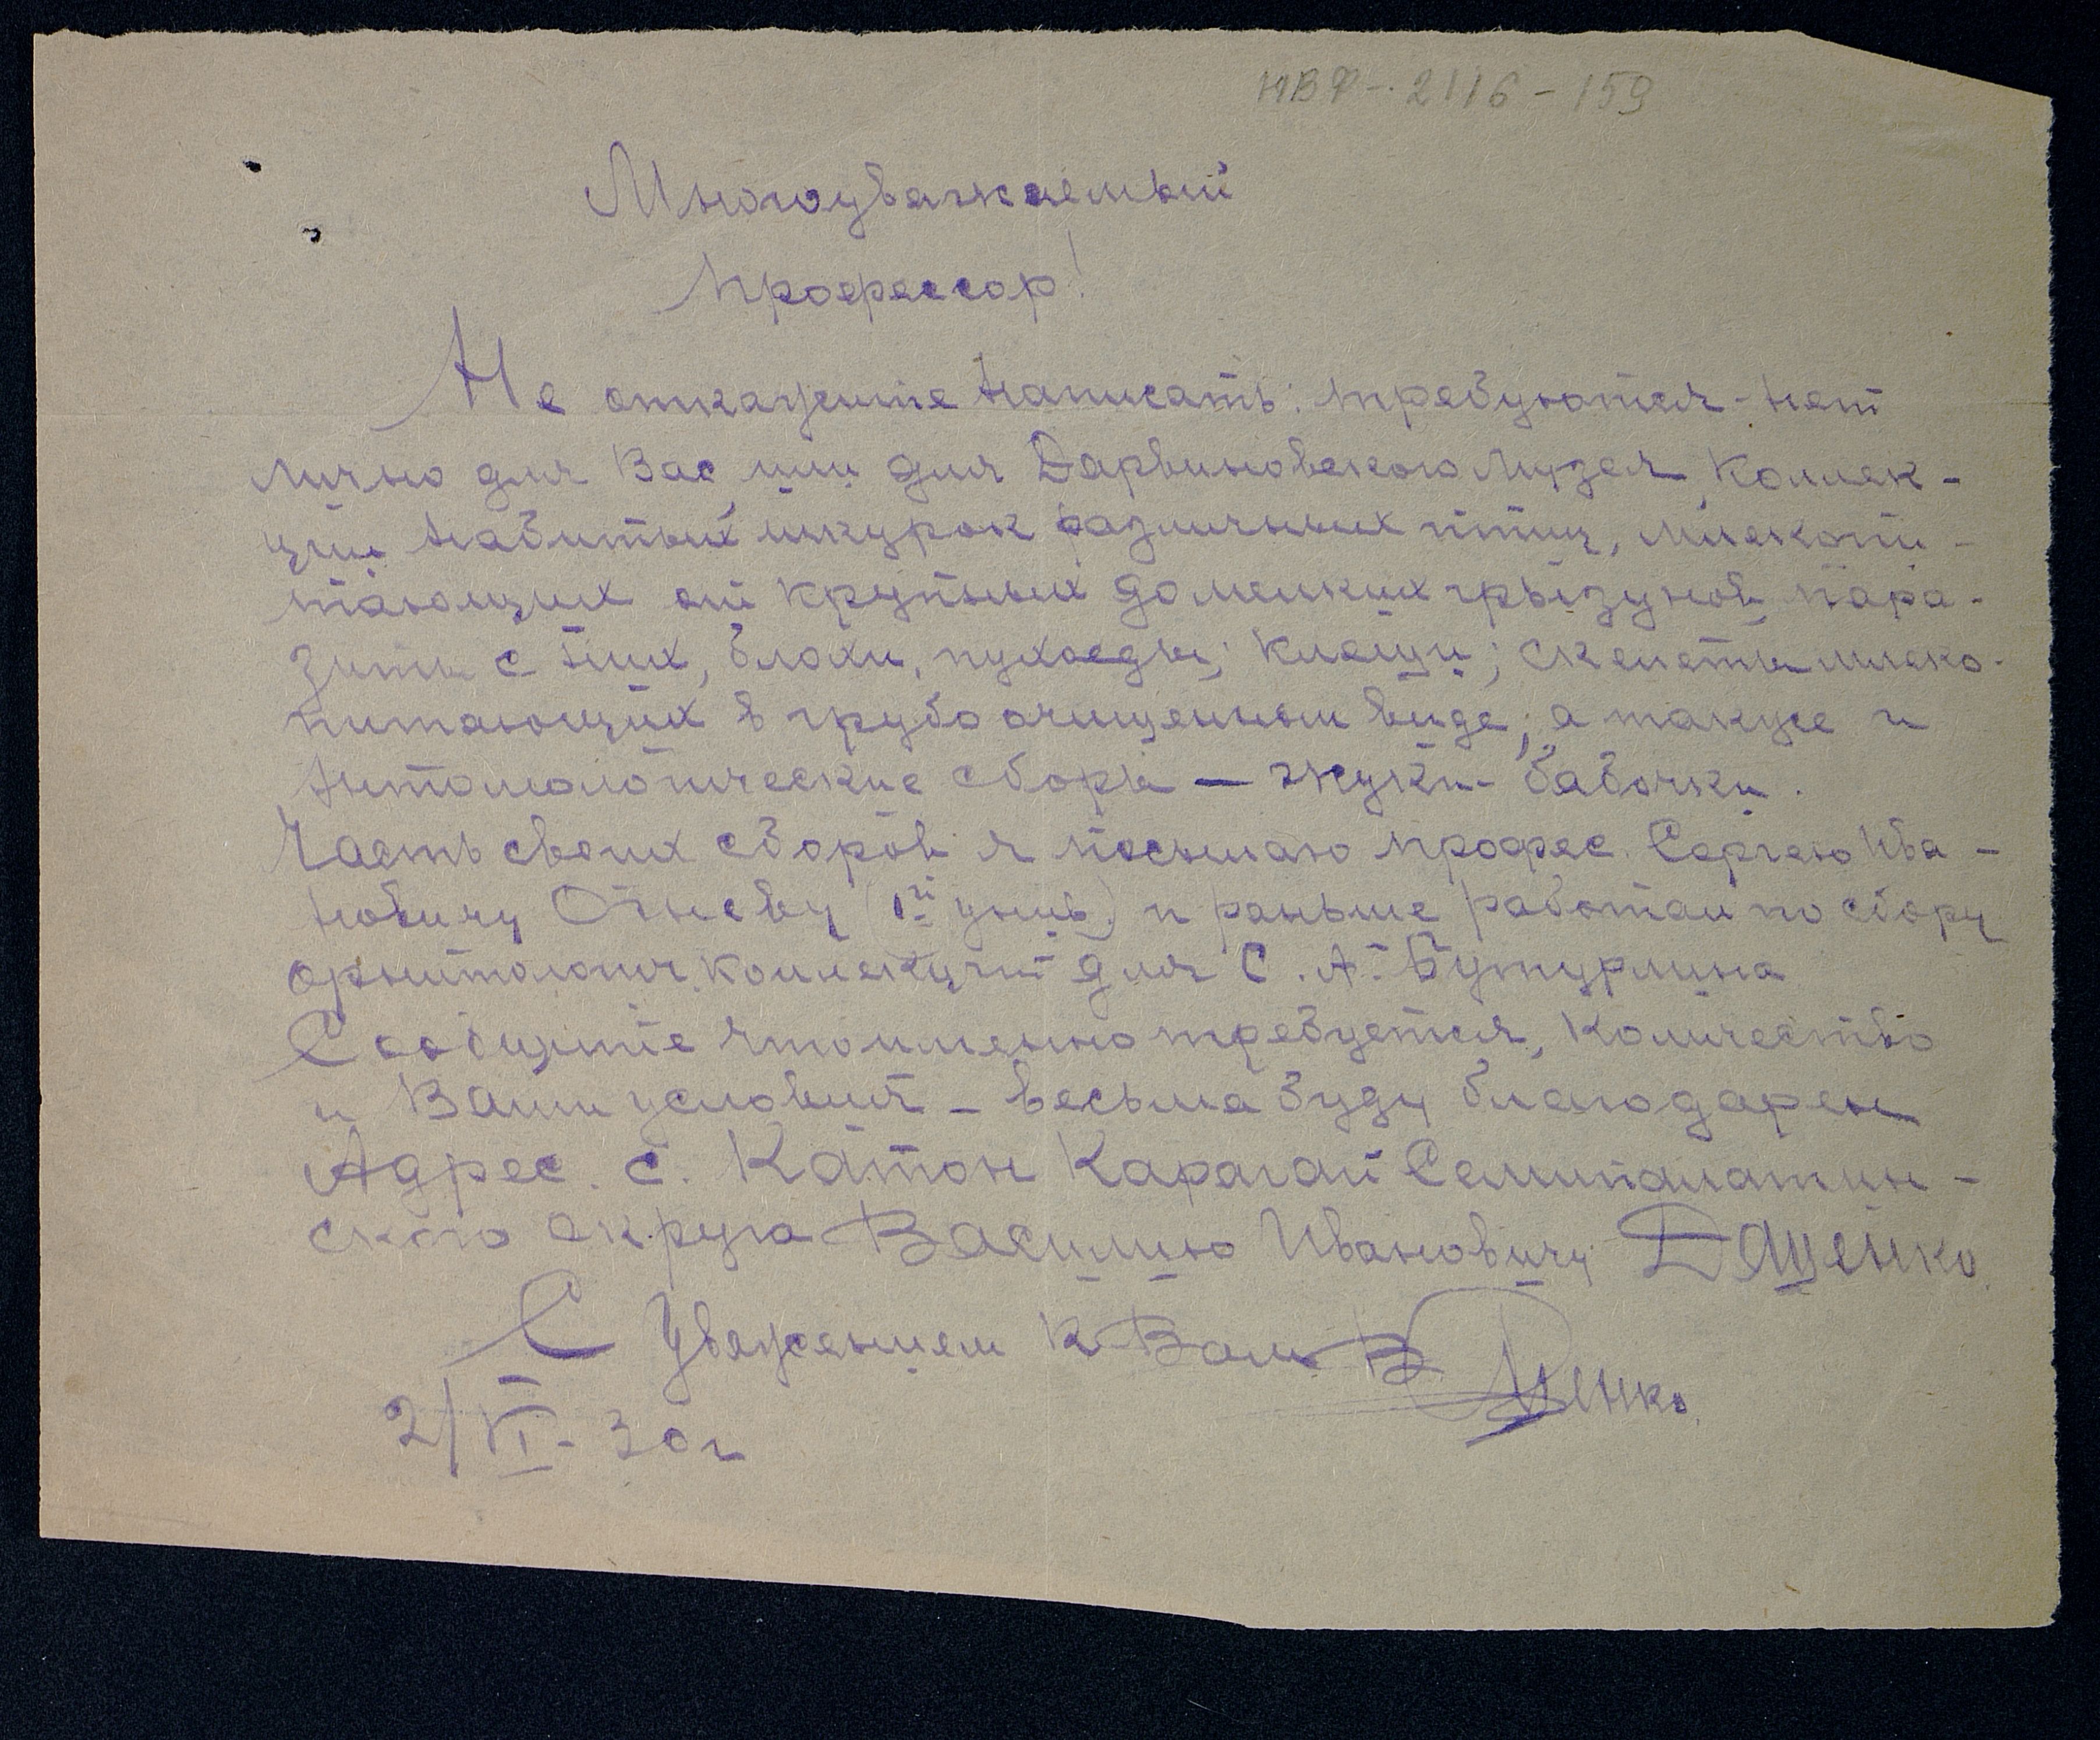 НВФ-2116-159
Многоуважаемый
Профессор!
Не откажите написать: требуются-нет
лично для Вас или для Дарвиновского музея, Коллек-
ции набитых шкурок различных птиц, млекопи-
тающих от крупных до мелких грызунов, пара-
зиты с них, блохи, пухоеды, клещи; скелеты млеко-
питающих в грубо очищенном виде, а также и
Энтомологические сборы — жуки-бабочки.
Часть своих сборов я посылаю профес. Сергею Ива-
новичу Огневу (1й унив.) и раньше работал по сбору
орнитологич. коллекций для С. А. Бутурлина
Сообщите что именно требуется, количество
и Ваши условия - весьма буду благодарен
Адрес. с. Катон Карагай Семипалатин-
ского округа Василию Ивановичу Дященко.
С уважением к Вам В Дященко.
2/VI-30г